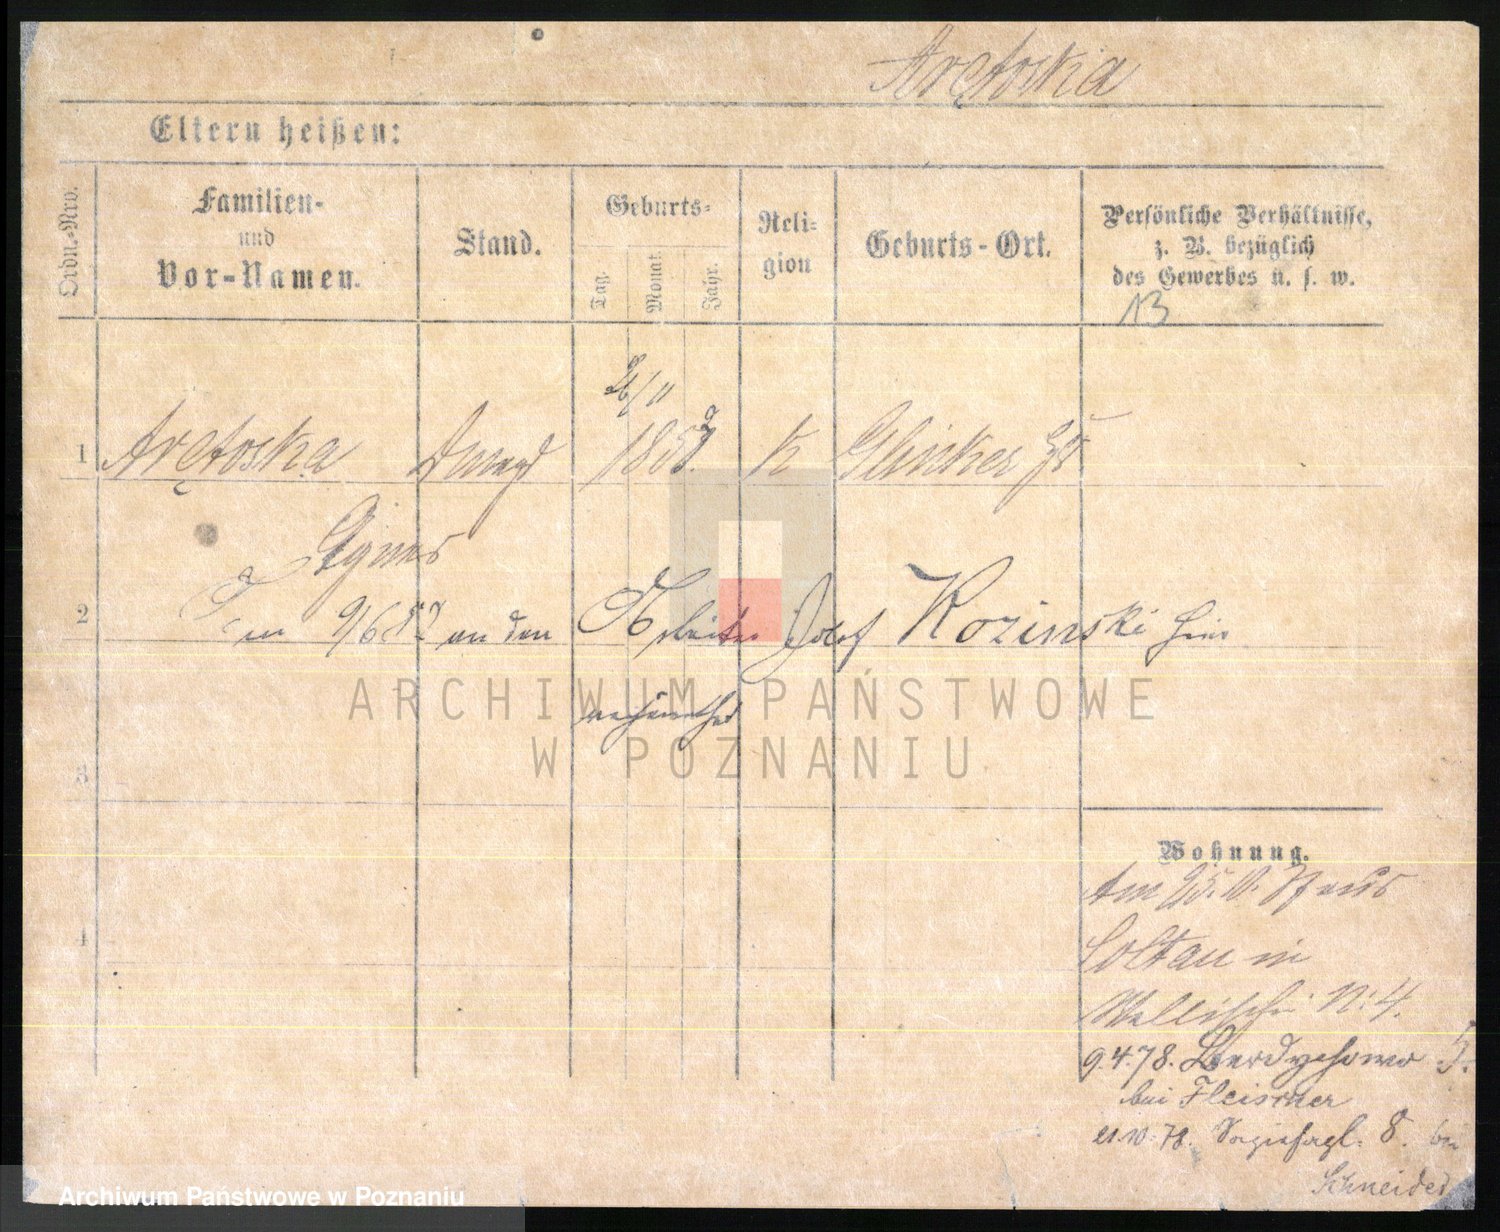 Arctoska
Eltern heißen:
Ordn.-Nro.
Familien-
und
Vor-Namen.
Stand.
Geburts-
Tag.
Monat.
Jahr.
Reli-
gion
Geburts-Ort.
Persönliche Verhältnisse,
z. B. bezüglich
des Gewerbes u. s. w.
13
1 Arctoska Dmagd 1857 K
Agnes
2 9/6 82 an den Arbeiter Josef Kozinski hier
verheirathet
3
4
Wohnung.
Am
Soltau in
Wallischei N: 4.
9.4.78. Berdychowo 5.
bei Fleischer
21.10.78. 8. bei
Schneider
ARCHIWUM PAŃSTWOWE
W POZNANIU
Archiwum Państwowe w Poznaniu